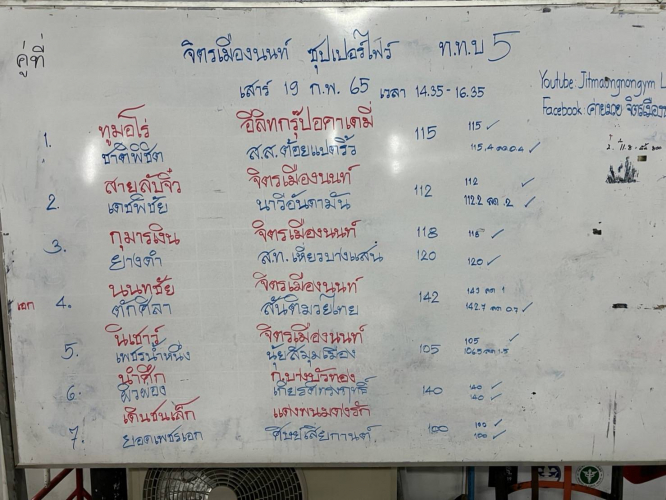 คู่ที่ จิตรเมืองนนท์ ซุปเปอร์ไฟว์ ท.ท.บ 5
เสาร์ 19 ก.พ. 65 เวลา 14.35-16.35
Youtube: Jitmuangnongym L
Facebook: ค่ายมวย จิตรเมือง
1. ทูมอไร่ อีลิทกรุ๊ปอคาเดมี่ 115 115 ✓
ชาติพิชิต ส.ส.ต้อยแปดริ้ว 115.4 ลด 0.4 ✓
2. สายลับจิ๋ว จิตรเมืองนนท์ 112 112 ✓
เดชพิชัย นาวีอันดามัน 112.2 ลด .2 ✓
3. กุมารเงิน จิตรเมืองนนท์ 118 118 ✓
ยางดำ ส.ท.เหี่ยวบางแสน 120 120 ✓
เอก 4. นนทชัย จิตรเมืองนนท์ 142 143 ลด 1
ตักศิลา สันติมวยไทย 142.7 ลด 0.7 ✓
5. นิเชาว์ จิตรเมืองนนท์ 105 105 ✓
เพชรน้ำหนึ่ง นุ้ยสี่มุมเมือง 106.5 ลด 1.5
6. นำศึก ก.บางบัวทอง 140 140 ✓
ผิวผอง เกียรติทรงฤทธิ์ 140 ✓
7. เดินชนเล็ก แดงพนมดงรัก 100 100 ✓
ยอดเพชรเอก ศิษย์เสี่ยกานต์ 100 ✓